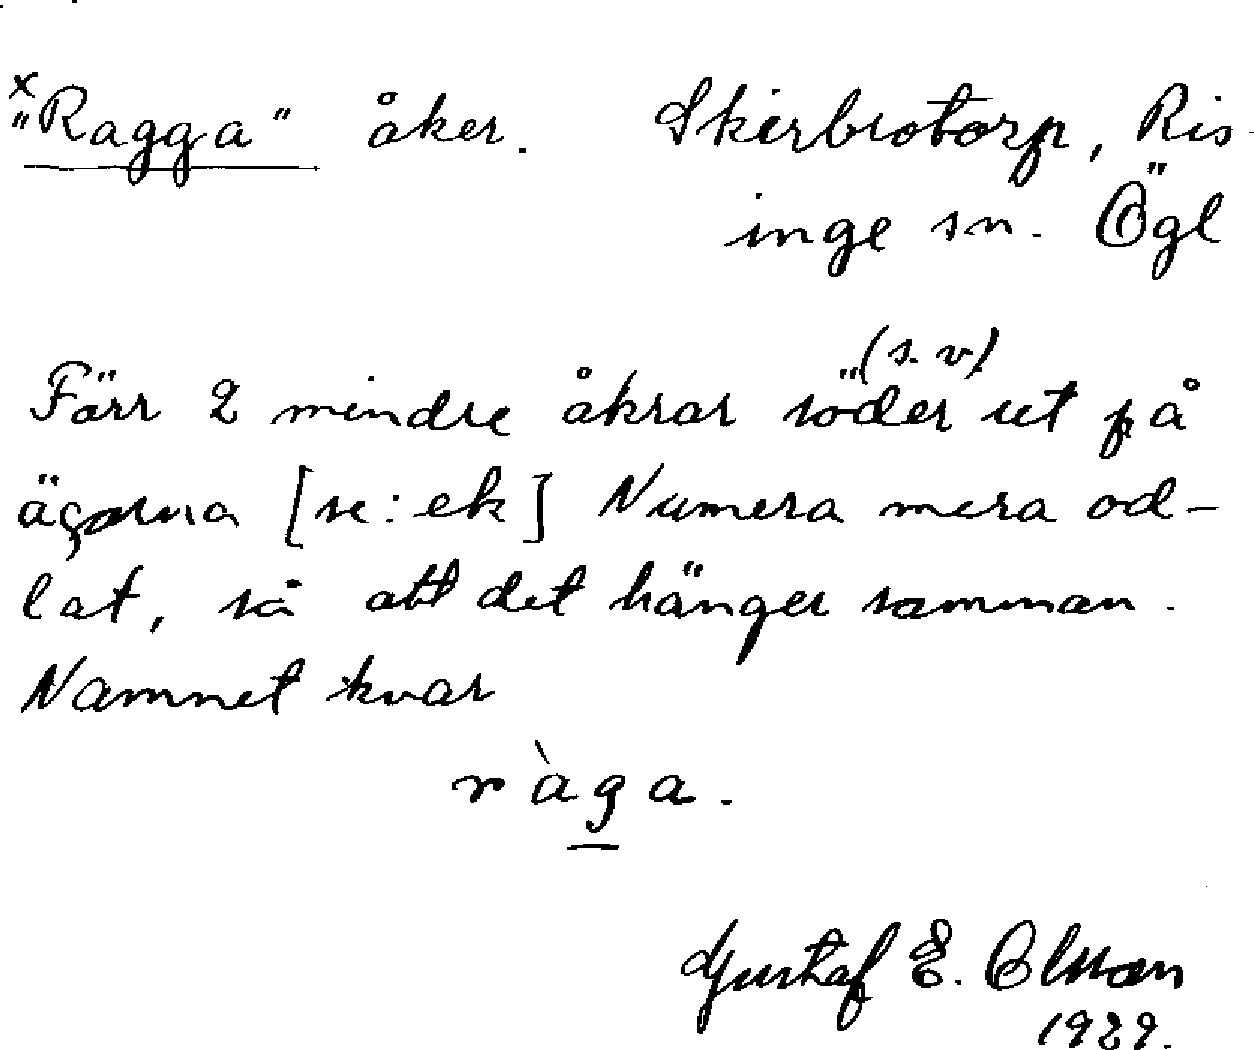 x
"Ragga" åker. Skirbrotorp, Ris-
inge sn. Ögl
(s.v)
Förr 2 mindre åkrar söder ut på
ägorna [se: ek] Numera mera od-
lat, så att det hänger samman.
Namnet kvar
ràga.
Gustaf E. Olsson
1929.